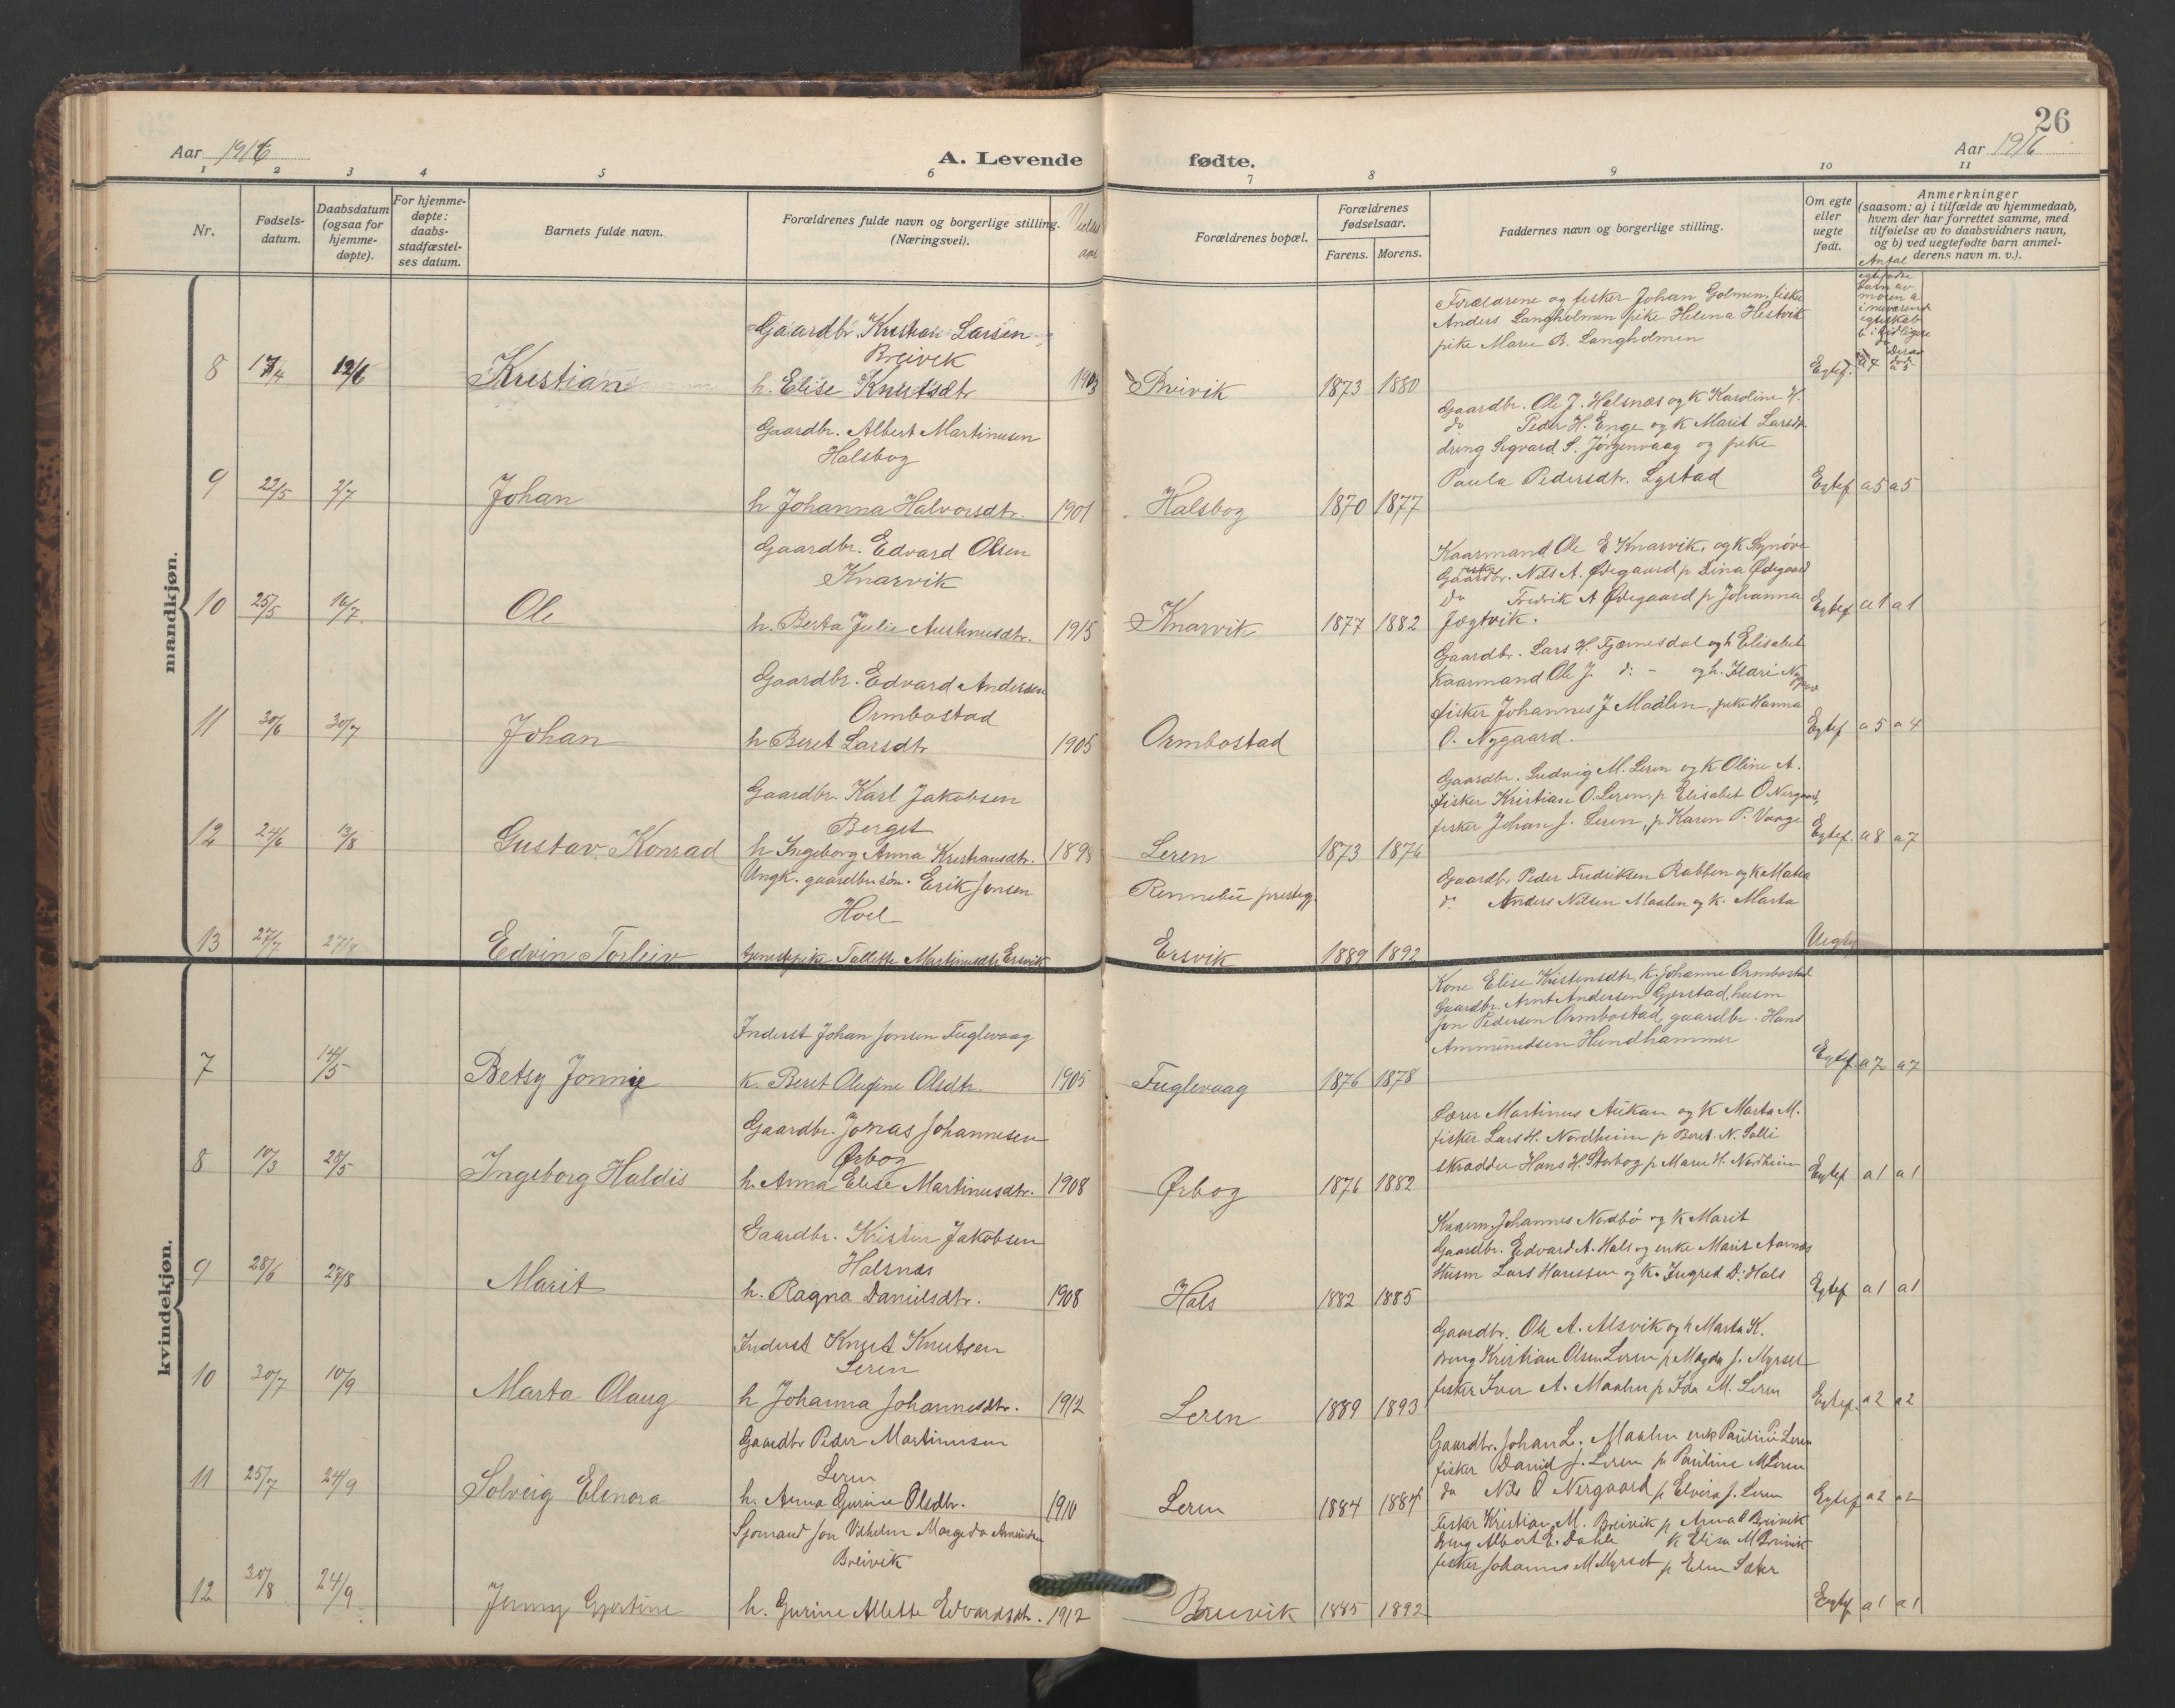 26
Aar 1916
A. Levende fødte.
Aar 1916
1 2 3 4 5 6 7 8 9 10 11
Nr.
Fødsels-
datum.
Daabsdatum
(ogsaa for
hjemme-
døpte).
For hjemme-
døpte:
daabs-
stadfæstel-
ses datum.
Barnets fulde navn.
Forældrenes fulde navn og borgerlige stilling.
(Næringsvei).
Vielses
aar
Forældrenes bopæl.
Forældrenes
fødselsaar.
Farens. Morens.
Faddernes navn og borgerlige stilling.
Om egte
eller
uegte
født.
Anmerkninger
(saasom: a) i tilfælde av hjemmedaab,
hvem der har forrettet samme, med
tilføielse av to daabsvidners navn,
og b) ved uegtefødte barn anmel-
derens navn m. v.).
Antal
egtefødte
barn av
moren a
i nuværende
egteskab
b i tidligere
do
mandkjøn.
Gaardbr. Kristian Larsen
Breivik
8 17/4 12/6 Kristian h. Elise Knutsdtr 1903 Breivik 1873 1880
Forældrene og fisker Johan Golmen, fisker
Anders Langholmen pike Helena Hestvik
pike Marie B. Langholmen
Egtef. a 7 a 5
Gaardbr. Albert Martinusen
Halsbog
9 22/5 2/7 Johan h Johanna Halvorsdtr. 1901 Halsbog 1870 1877
Gaardbr. Ole J. Halsnæs og k Karoline H.
do Peder H. Enge og k Marit Larsdt.
dreng Sigvard S. Jørgenvaag og pike
Paula Pedersdtr. Lystad
Egtef a5 a5
Gaardbr. Edvard Olsen
Knarvik
10 25/5 16/7 Ole h. Berta Julie Austinusdtr. 1915 Knarvik 1877 1882
Kaarmand Ole E Knarvik, og k Synøve
Gaardbr. Nils A. Ødegaard p Dina Ødegaard
do Fredrik A Ødegaard p Johanna
Jægtvik.
Egtef a1 a1
Gaardbr. Edvard Andersen
Ormbostad
11 30/6 30/7 Johan h Beret Larsdtr 1905 Ormbostad
Gaardbr. Lars H. Tjernesdal og h Elisabet
Kaarmand Ole J. d: - og h. Ildri Nygaard
fisker Johannes J Maalen, pike Hanna
O. Nygaard.
Egtef a5 a4
Gaardbr. Karl Jakobsen
Berget
12 24/6 13/8 Gustav Konrad h Ingeborg Anna Kristiansdtr. 1898 Leren 1873 1876
Gaardbr. Ludvig M. Leren og k Oline A.
fisker Kristian O. Leren, p Elisabet O Nergaard,
fisker Johan J. Leren, p Karen P. Vaage
Egtef. a8 a7
Ungk. gaardbrsøn. Erik Jonsen
Hoel
Rennebu prestegj.
13 27/7 27/8 Edvin Torleiv Tjenestepike Tallette Martinusdtr Ersvik Ersvik 1889 1892
Gaardbr Peder Fredriksen Rabben og k Matea
do Anders Nilsen Maalen og k. Marta
Uegte
kvindekjøn.
Inderst Johan Jonsen Fuglevaag
7 14/5 Betsy Jonnie k. Beret Olufine Olsdtr. 1905 Fuglevaag 1876 1878
Kone Elise Kristensdtr, k. Johanne Ormbostad
Gaardbr. Arnt Andersen Gjerstad, husm
Jon Pedersen Ormbostad, gaardbr. Hans
Ammundsen Hundhammer
Egtef a7 a7
Gaardbr. Jonas Johannesen
Ørbog
8 10/3 28/5 Ingeborg Haldis h. Anna Elise Martinusdtr. 1908 Ørbog 1876 1882
Lærer Martinus Aukan og k Marta M.
fisker Lars H. Nordheim p Beret N. Solli
skrædder Hans H. Storbog p Marie H. Nordheim
Egtef a1 a1
Gaardbr. Kristen Jakobsen
Halsnæs
9 28/6 27/8 Marit h. Ragna Danielsdtr. 1908 Hals 1882 1885
Kaarm. Johannes Nordbø og k Marit
Gaardbr. Edvard A. Hals og enke Marit Aarnes
Husm Lars Hanssen og k. Ingrid D. Hals
Egtef a1 a1
Inderst Knut Knutsen
Leren
10 30/7 10/9 Marta Olaug h Johanna Johannesdtr. 1912 Leren 1889 1893
Gaardbr. Ole A. Alsvik og h Marta K.
dreng Kristian Olsen Leren p Magda J. Myrset
fisker Iver A. Maalen p Ida M. Leren
Egtef. a2 a2
Gaardbr Peder Martinusen
Leren
11 25/7 24/9 Solveig Elenora h. Anna Gurine Olsdtr. 1910 Leren 1884 1884
Gaardbr. Johan L. Maalen enke Pauline Leren
fisker David J. Leren p Pauline M Leren
do Nils O Nergaard p Elvira J. Leren
Egtef a2 a2
Sjømand Jon Vilhelm Margido Amundsen
Breivik
12 30/8 24/9 Jenny Gjertine h. Gurine Alette Edvardsdtr. 1912 Breivik 1885 1892
Fisker Kristian M. Breivik p Anna O Breivik
Dreng Albert E. Dahle k Elisa M Breivik
fisker Johannes M Myrset p Elen Sæter
Egtef a1 a1